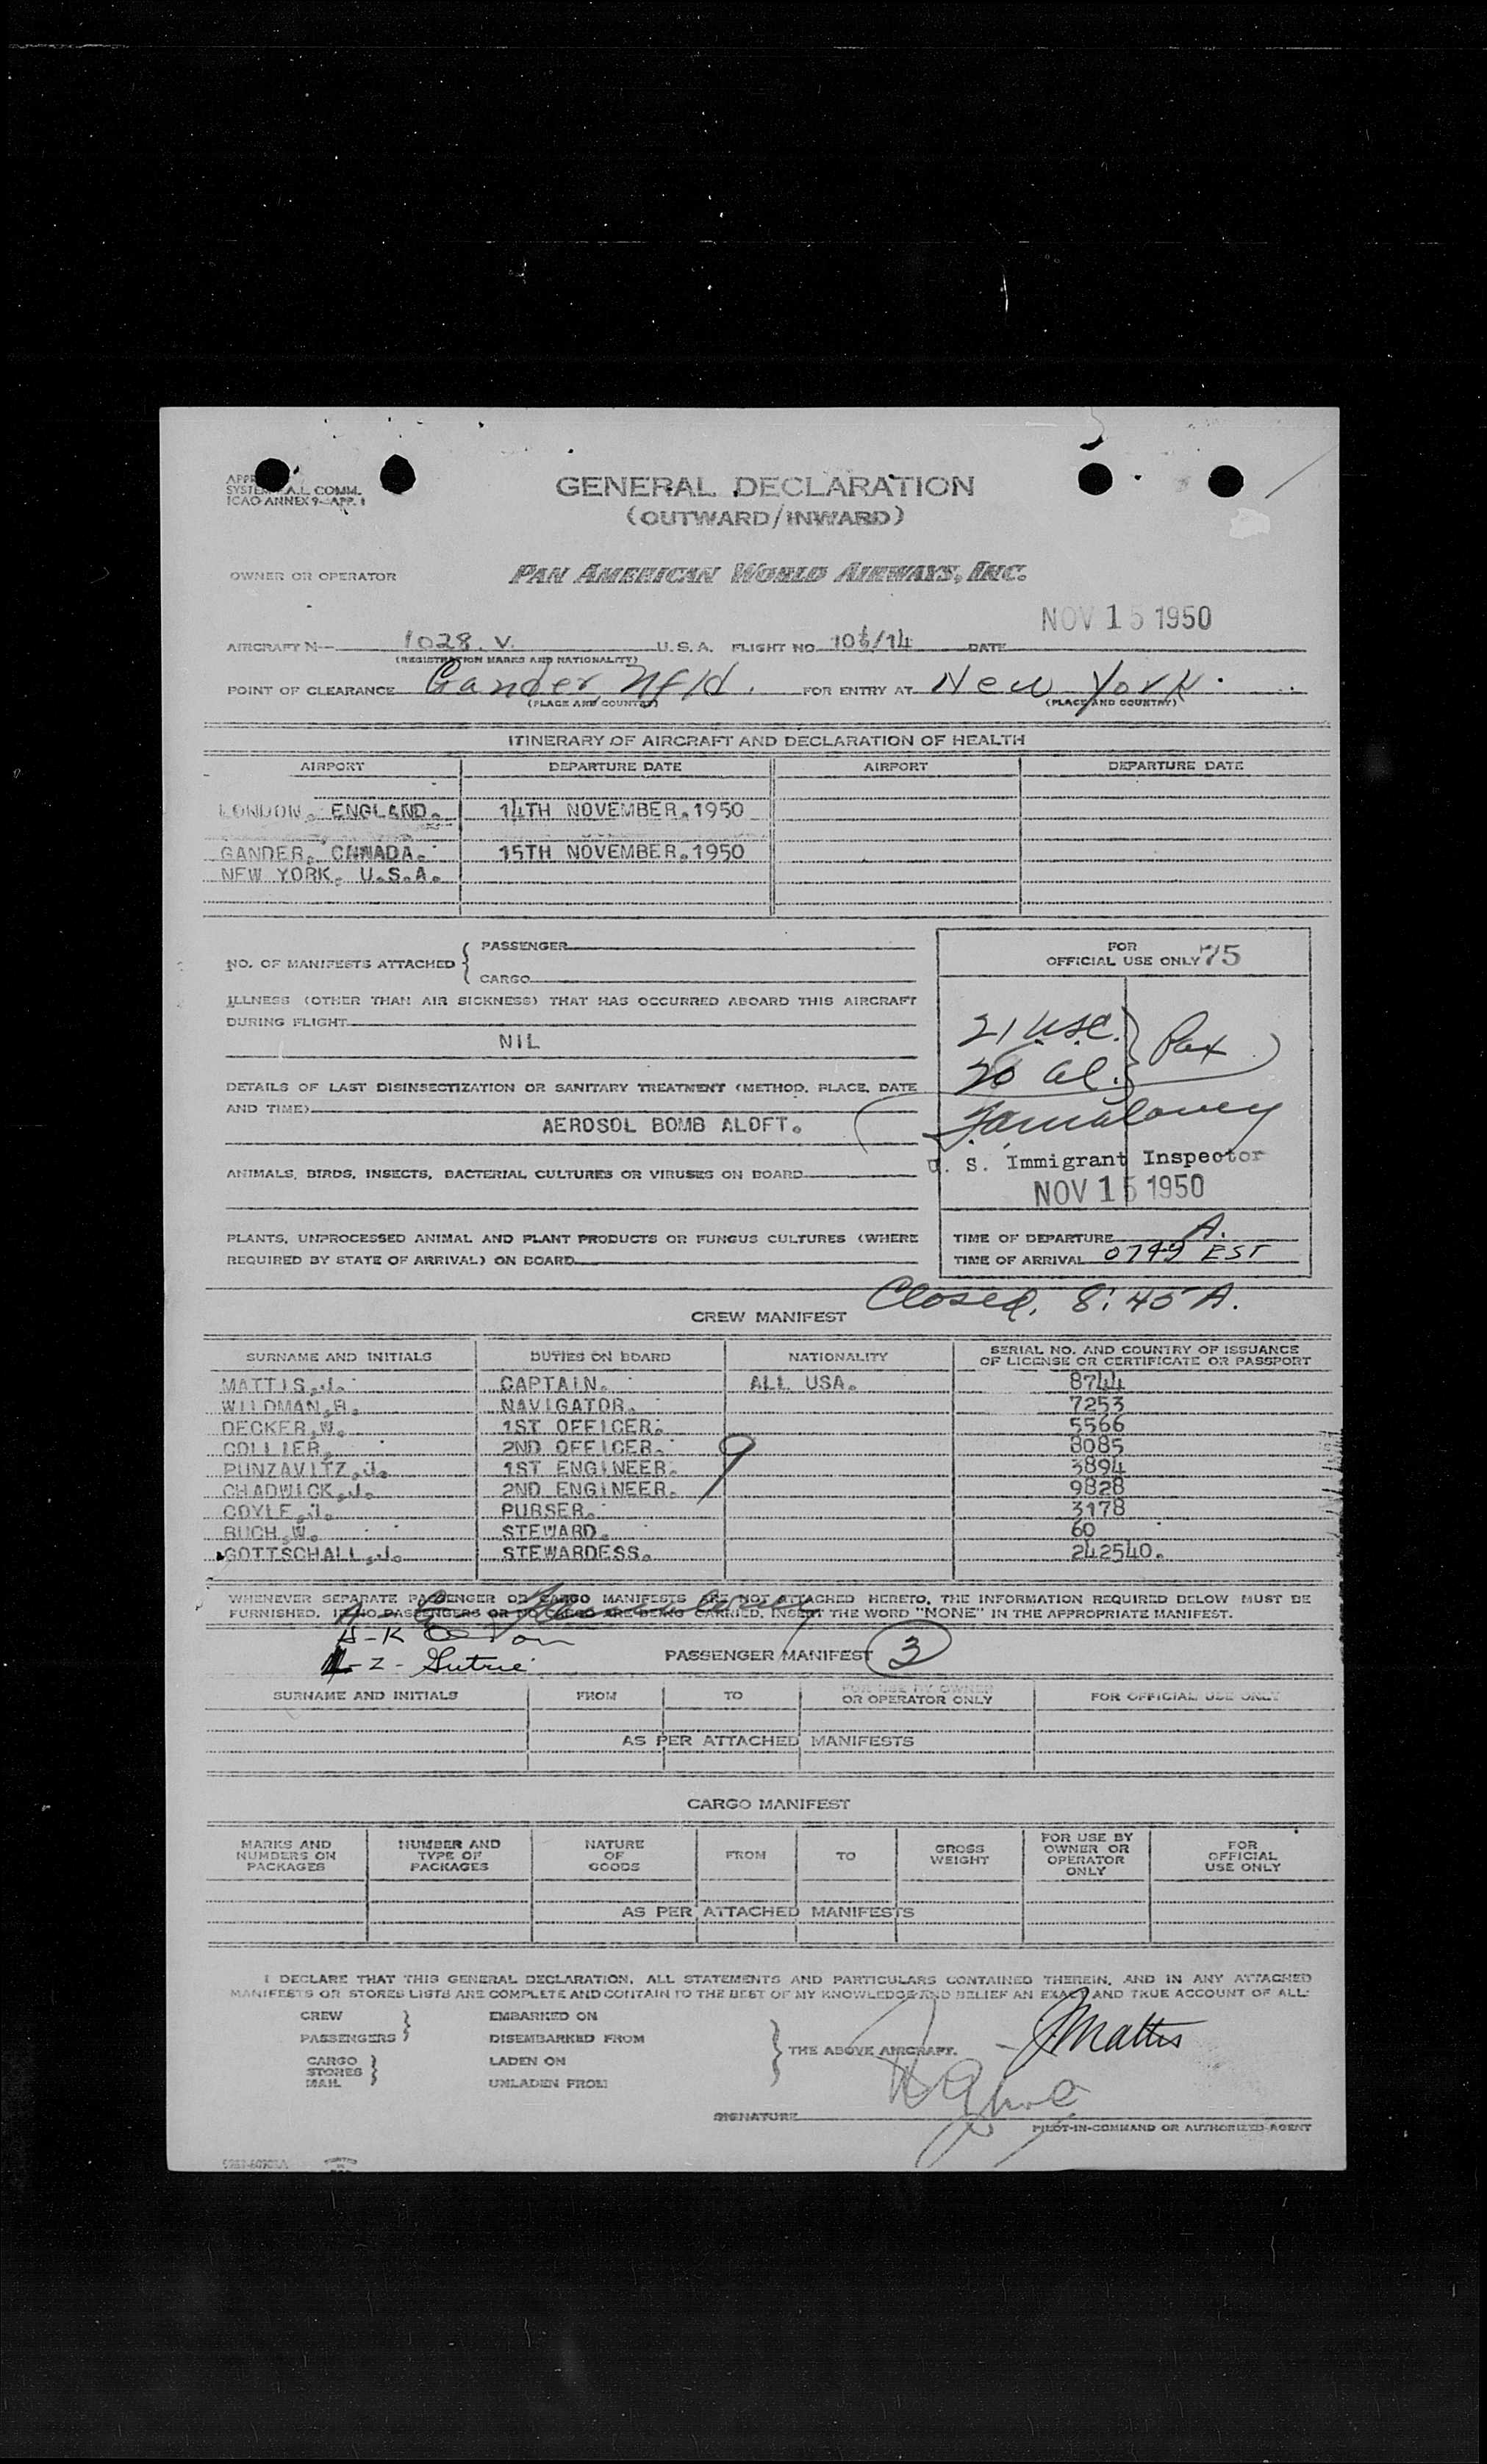 SYSTEM A.L. COMM.
ICAO ANNEX 9-APP. 1
GENERAL DECLARATION
(OUTWARD/INWARD)
OWNER OR OPERATOR PAN AMERICAN WORLD AIRWAYS, INC.
NOV 15 1950
AIRCRAFT N- 1028.V. U.S.A. FLIGHT NO. /14 DATE
(REGISTRATION MARKS AND NATIONALITY)
POINT OF CLEARANCE Gander, Nfld. FOR ENTRY AT New York.
(PLACE AND COUNTRY) (PLACE AND COUNTRY)
ITINERARY OF AIRCRAFT AND DECLARATION OF HEALTH
AIRPORT DEPARTURE DATE AIRPORT DEPARTURE DATE
LONDON. ENGLAND. 14TH NOVEMBER.1950
GANDER. CANADA. 15TH NOVEMBER.1950
NEW YORK. U.S.A.
NO. OF MANIFESTS ATTACHED { PASSENGER
CARGO
FOR
OFFICIAL USE ONLY 75
ILLNESS (OTHER THAN AIR SICKNESS) THAT HAS OCCURRED ABOARD THIS AIRCRAFT
DURING FLIGHT
NIL
21 USC. } Pax
20 al.
DETAILS OF LAST DISINSECTIZATION OR SANITARY TREATMENT (METHOD, PLACE, DATE
AND TIME)
AEROSOL BOMB ALOFT.
U. S. Immigrant Inspector
NOV 15 1950
ANIMALS, BIRDS, INSECTS, BACTERIAL CULTURES OR VIRUSES ON BOARD
PLANTS, UNPROCESSED ANIMAL AND PLANT PRODUCTS OR FUNGUS CULTURES (WHERE
REQUIRED BY STATE OF ARRIVAL) ON BOARD
TIME OF DEPARTURE A.
TIME OF ARRIVAL 0749 EST
Closed. 8:45 A.
CREW MANIFEST
SURNAME AND INITIALS DUTIES ON BOARD NATIONALITY SERIAL NO. AND COUNTRY OF ISSUANCE
OF LICENSE OR CERTIFICATE OR PASSPORT
MATTIS,J. CAPTAIN. ALL USA. 8744
WILDMAN,R. NAVIGATOR. 7253
DECKER,W. 1ST OFFICER. 5566
COLLIER, 2ND OFFICER. 8085
PUNZAVITZ,J. 1ST ENGINEER. 3894
CHADWICK,J. 2ND ENGINEER. 9828
COYLE,J. PURSER. 3178
BUCH,W. STEWARD. 60
GOTTSCHALL,J. STEWARDESS. 242540.
9
WHENEVER SEPARATE PASSENGER OR CARGO MANIFESTS ARE NOT ATTACHED HERETO, THE INFORMATION REQUIRED BELOW MUST BE
FURNISHED. IF NO PASSENGERS OR NO CARGO ARE BEING CARRIED, INSERT THE WORD "NONE" IN THE APPROPRIATE MANIFEST.
H-K
L-Z-
PASSENGER MANIFEST 3
SURNAME AND INITIALS FROM TO FOR USE BY OWNER
OR OPERATOR ONLY FOR OFFICIAL USE ONLY
AS PER ATTACHED MANIFESTS
CARGO MANIFEST
MARKS AND
NUMBERS ON
PACKAGES
NUMBER AND
TYPE OF
PACKAGES
NATURE
OF
GOODS
FROM
TO
GROSS
WEIGHT
FOR USE BY
OWNER OR
OPERATOR
ONLY
FOR
OFFICIAL
USE ONLY
AS PER ATTACHED MANIFESTS
I DECLARE THAT THIS GENERAL DECLARATION, ALL STATEMENTS AND PARTICULARS CONTAINED THEREIN, AND IN ANY ATTACHED
MANIFESTS OR STORES LISTS ARE COMPLETE AND CONTAIN TO THE BEST OF MY KNOWLEDGE AND BELIEF AN EXACT AND TRUE ACCOUNT OF ALL:
CREW EMBARKED ON
PASSENGERS DISEMBARKED FROM
CARGO LADEN ON
STORES
MAIL UNLADEN FROM
THE ABOVE AIRCRAFT.
JMattis
SIGNATURE
PILOT-IN-COMMAND OR AUTHORIZED AGENT